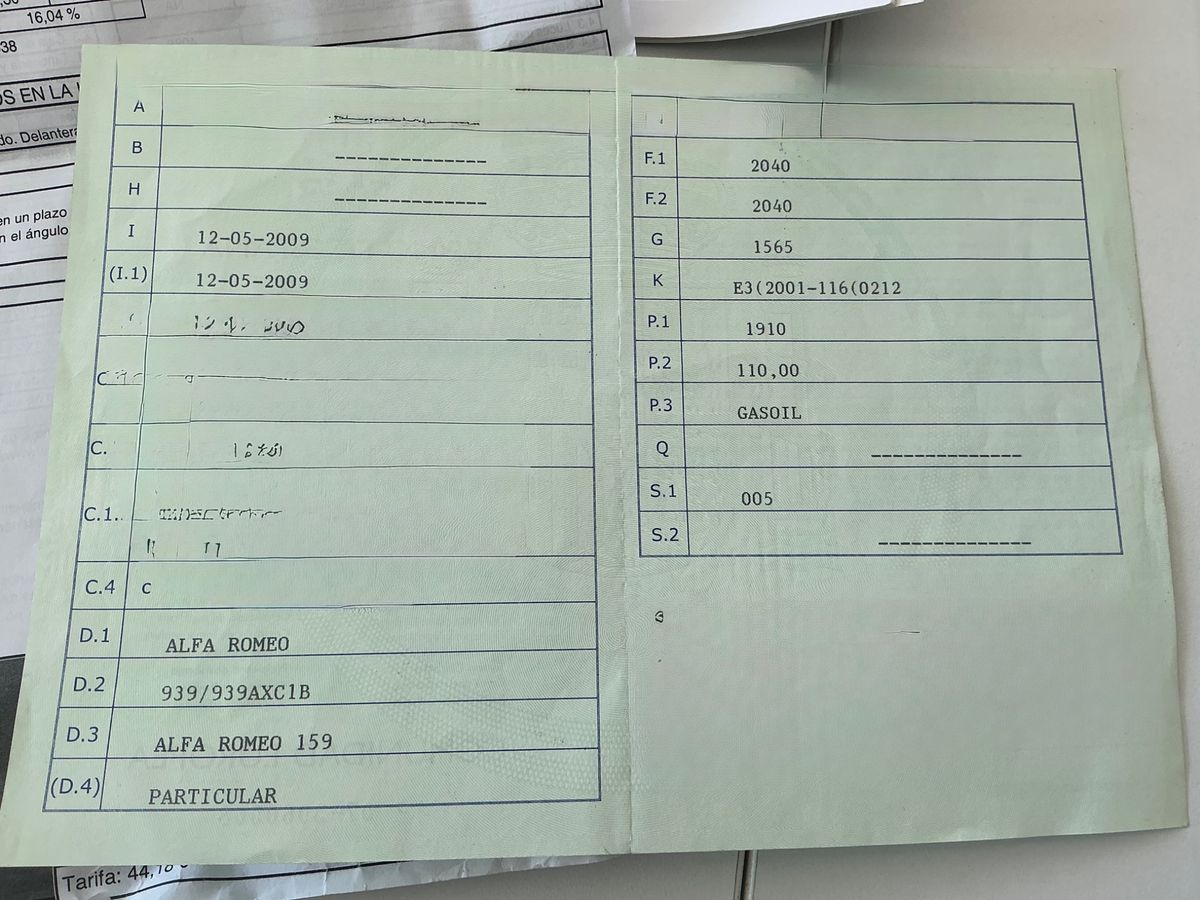 16,04 %
38
OS EN LA
do. Delantera
en un plazo
n el ángulo
A
B --------------
H --------------
I 12-05-2009
(I.1) 12-05-2009
C.
C.1.
C.4 c
D.1 ALFA ROMEO
D.2 939/939AXC1B
D.3 ALFA ROMEO 159
(D.4) PARTICULAR
F.1 2040
F.2 2040
G 1565
K E3(2001-116(0212
P.1 1910
P.2 110,00
P.3 GASOIL
Q --------------
S.1 005
S.2 --------------
Tarifa: 44,18